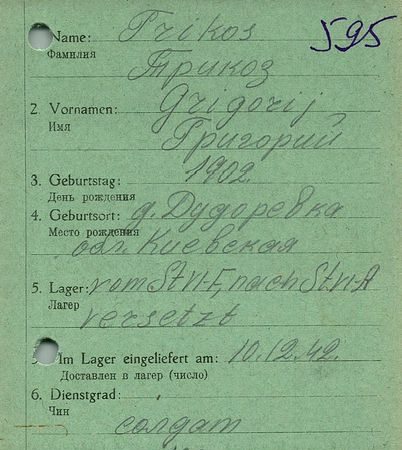 595
Name: Trikos
Фамилия
Трикоз
2. Vornamen: Grigorij
Имя
Григорий
3. Geburtstag: 1902.
День рождения
4. Geburtsort: д. Дудоревка
Место рождения
обл. Киевская
5. Lager: vom St VI-F, nach St. VI-A
Лагер
versetzt
Im Lager eingeliefert am: 10.12.42.
Доставлен в лагер (число)
6. Dienstgrad:
Чин
солдат